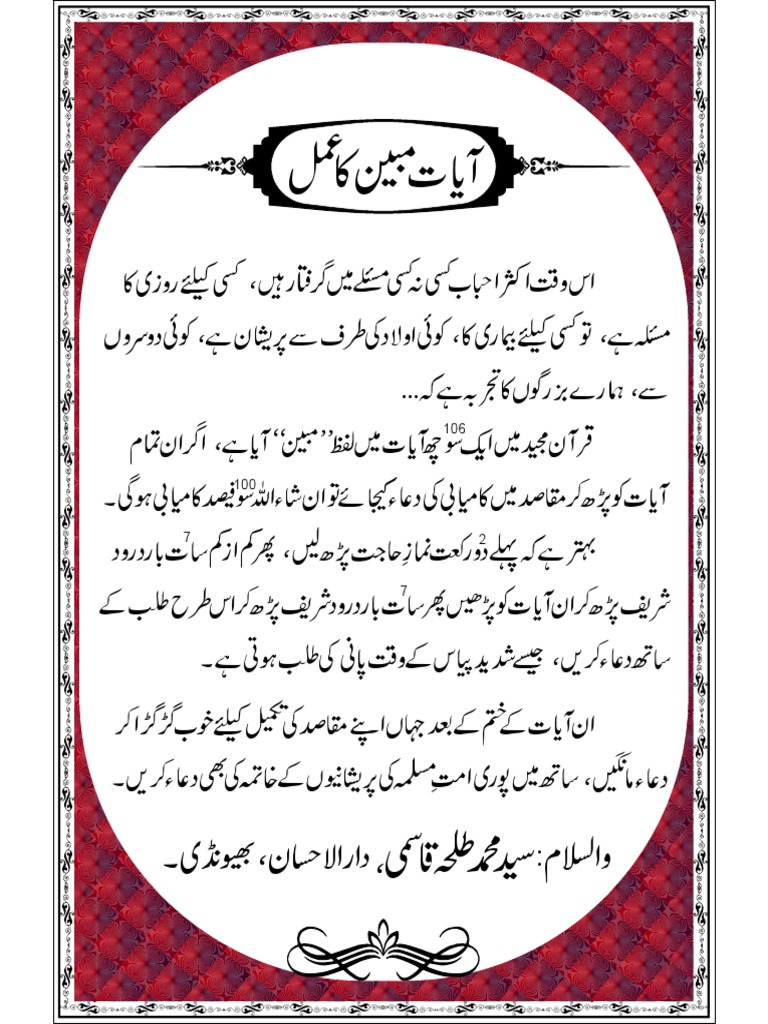 آیات مبین کا عمل
اس وقت اکثر احباب کسی نہ کسی مسئلے میں گرفتار ہیں، کسی کیلئے روزی کا
مسئلہ ہے، تو کسی کیلئے بیماری کا، کوئی اولاد کی طرف سے پریشان ہے، کوئی دوسروں
سے، ہمارے بزرگوں کا تجربہ ہے کہ...
قرآن مجید میں ایک سو چھ106 آیات میں لفظ ’’مبین‘‘ آیا ہے، اگر ان تمام
آیات کو پڑھ کر مقاصد میں کامیابی کی دعاء کیجائے تو ان شاء اللہ سو100 فیصد کامیابی ہوگی۔
بہتر ہے کہ پہلے دو2 رکعت نمازِ حاجت پڑھ لیں، پھر کم از کم سات7 بار درود
شریف پڑھ کر ان آیات کو پڑھیں پھر سات7 بار درود شریف پڑھ کر اس طرح طلب کے
ساتھ دعاء کریں، جیسے شدید پیاس کے وقت پانی کی طلب ہوتی ہے۔
ان آیات کے ختم کے بعد جہاں اپنے مقاصد کی تکمیل کیلئے خوب گڑگڑا کر
دعاء مانگیں، ساتھ میں پوری امتِ مسلمہ کی پریشانیوں کے خاتمہ کی بھی دعاء کریں۔
والسلام: سید محمد طلحہ قاسمی، دارالاحسان، بھیونڈی۔